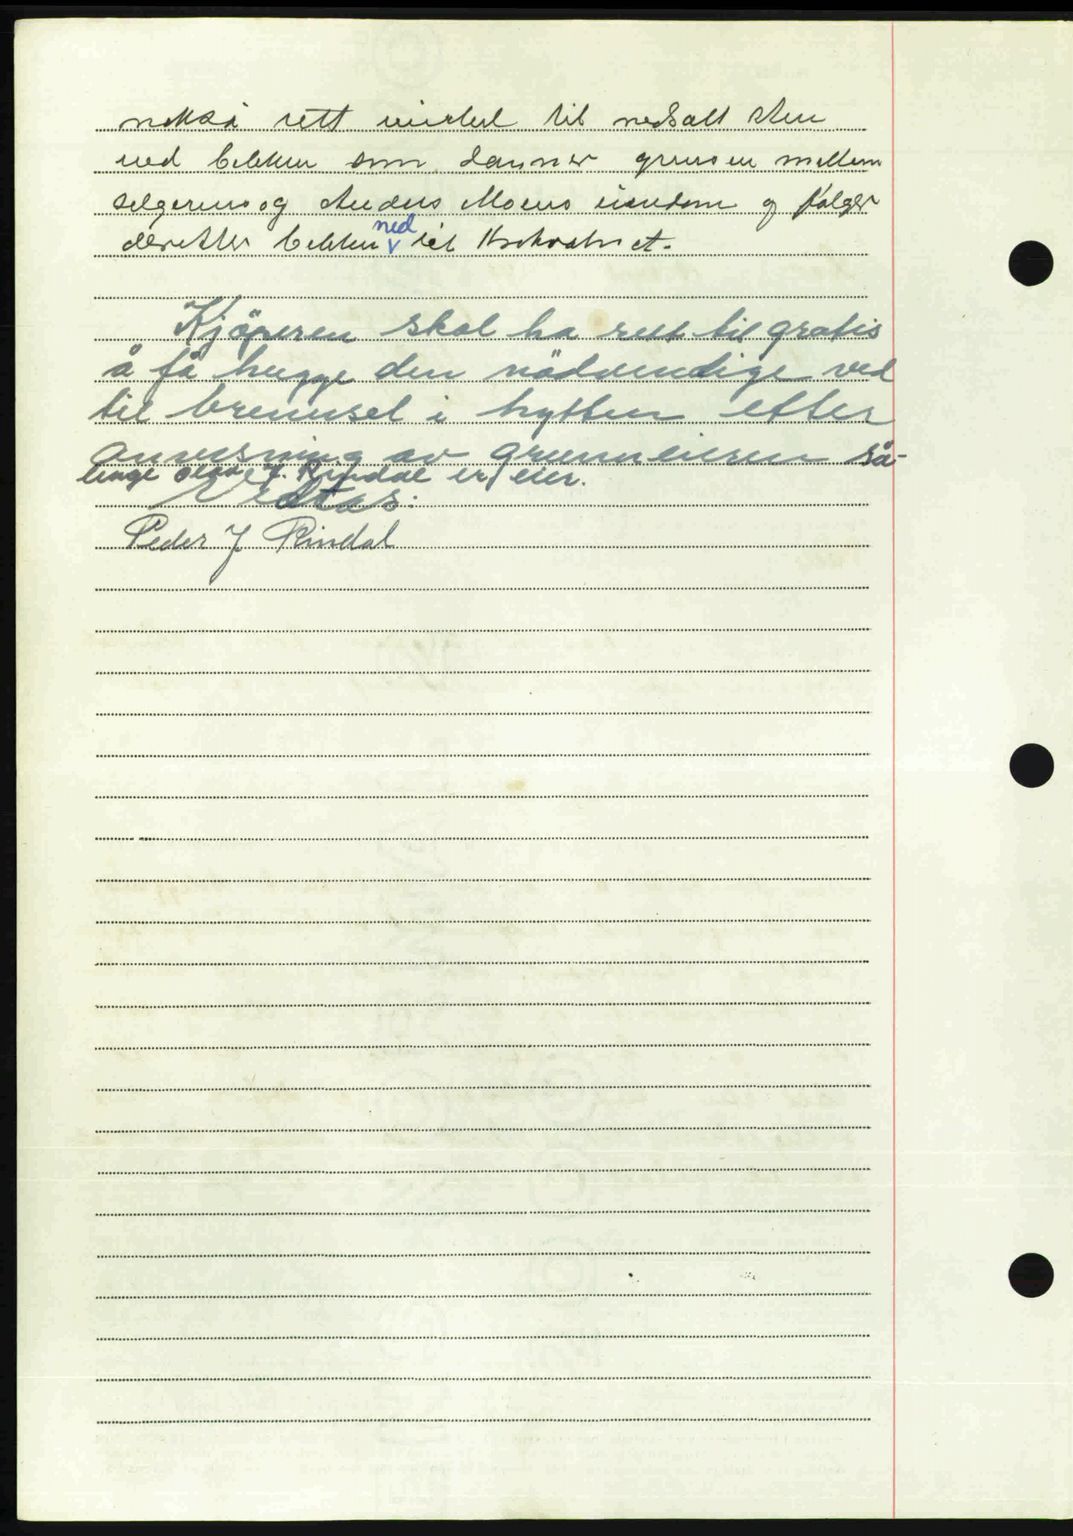 nokså rett vinkel til nedsatt sten
ved bekken som danner grensen mellem
selgerens og Anders Moens eiendom og følger
deretter bekken ned til
Kjöperen skal ha rett til gratis
å få hugge den nödvendige ved
til brennsel i hytten efter
anvisning av grunneieren så-
lenge Olav J. Rindal er eier.
Vedtas:
Peder J Rindal